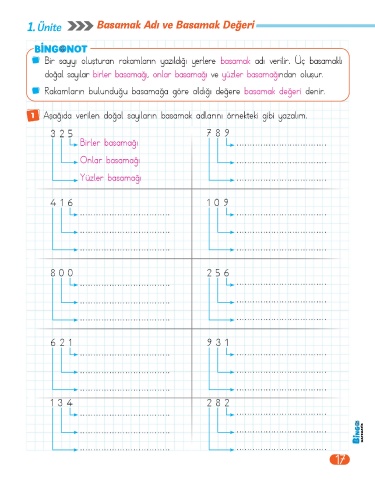 1. Ünite Basamak Adı ve Basamak Değeri
BİNGO NOT
Bir sayıyı oluşturan rakamların yazıldığı yerlere basamak adı verilir. Üç basamaklı
doğal sayılar birler basamağı, onlar basamağı ve yüzler basamağından oluşur.
Rakamların bulunduğu basamağa göre aldığı değere basamak değeri denir.
1 Aşağıda verilen doğal sayıların basamak adlarını örnekteki gibi yazalım.
325
Birler basamağı
Onlar basamağı
Yüzler basamağı
789
416
109
800
256
621
931
134
282
Bingo
17